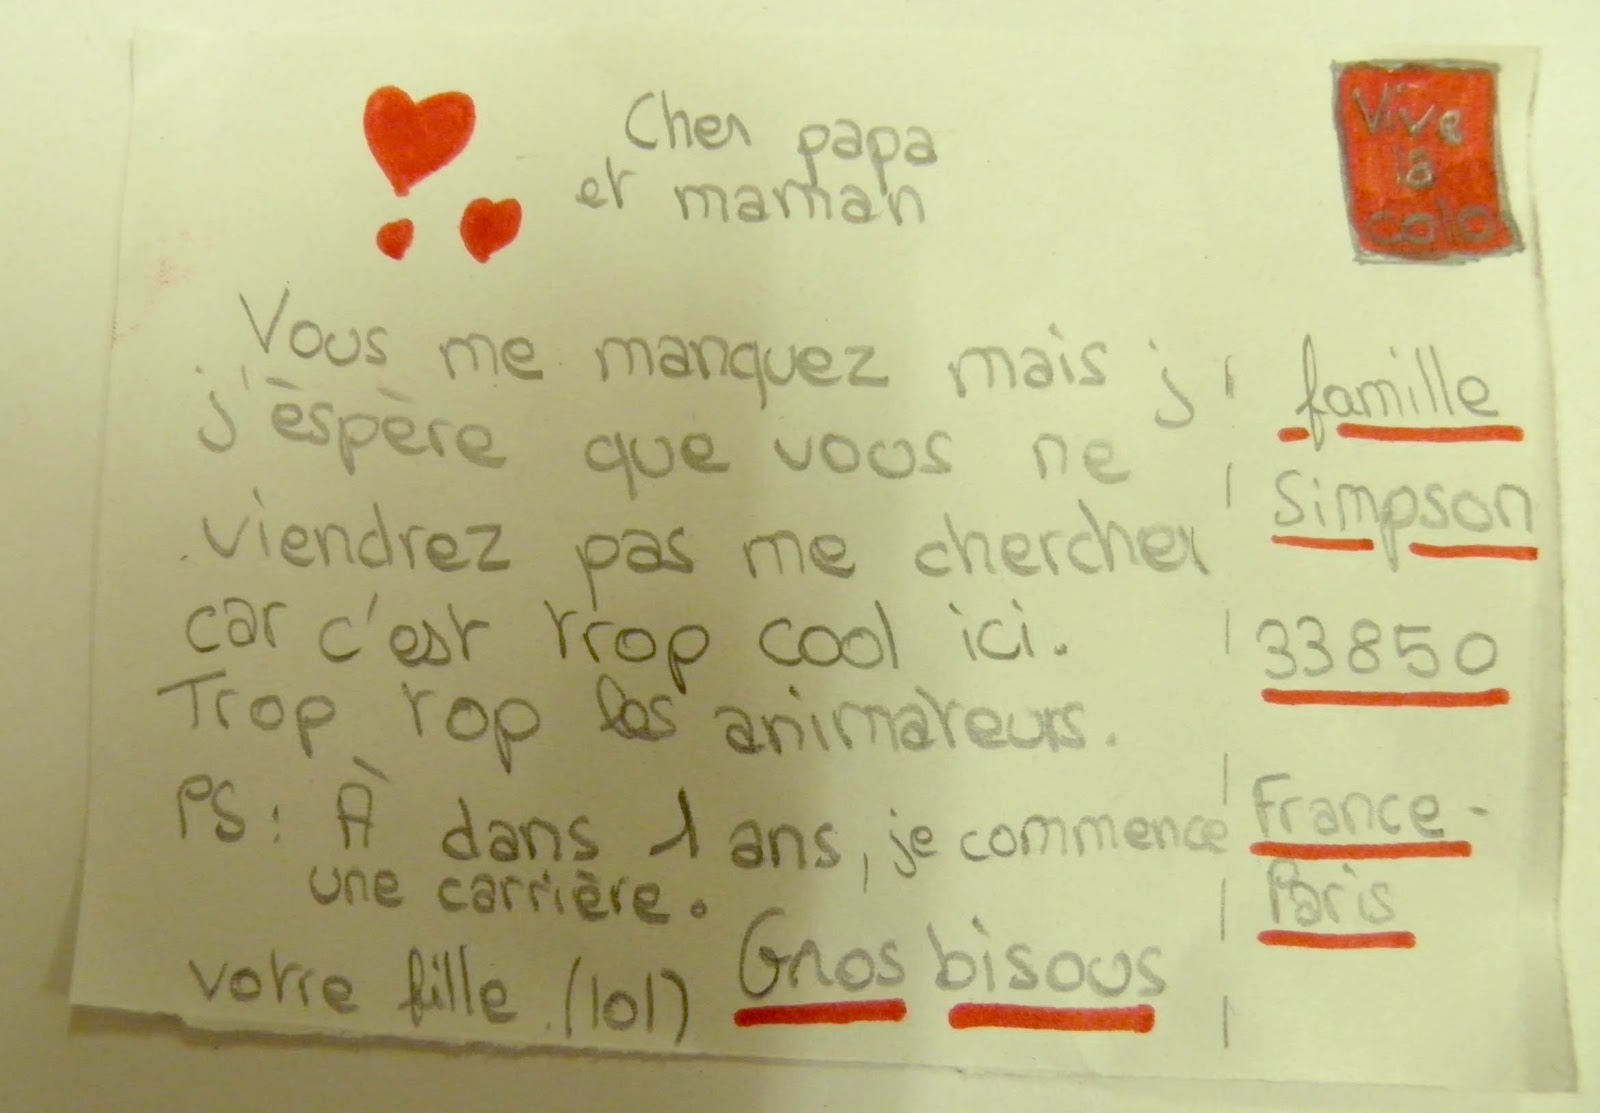 Cher papa
et maman
Vive
la
colo
Vous me manquez mais j
j'èspère que vous ne
viendrez pas me chercher
car c'est trop cool ici.
Trop rop les animateurs.
PS : À dans 1 ans, je commence
une carrière.
votre fille. (lol) Gros bisous
famille
Simpson
33850
France -
Paris